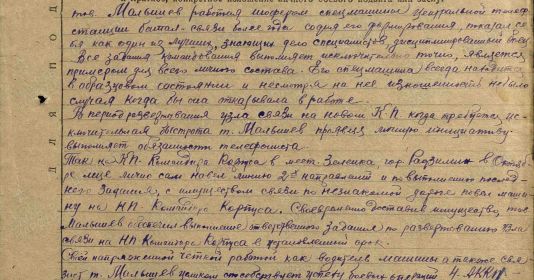 конкретное изложение личного боевого подвига или заслуг
тов. Малышев работая шофером спецмашины центральной телеф.
станции батал. связи более года со дня его формирования, показал се-
бя как один из лучших, знающих дело специалистов дисциплинированный боец.
Все задания командования выполняет исключительно точно, является
примером для всего личного состава. Его спецмашина всегда находится
в образцовом состоянии и несмотря на её изношенность не было
случая когда бы она отказывала в работе.
В период развертывания узла связи на новом К.П. когда требуется ис-
ключительная быстрота т. Малышев проявляя личную инициативу
выполняет обязанности телефониста.
Так на КП Командира Корпуса в мест. Зеленка гор. Радзимин в Октяб-
ре м-це лично сам навел линию 2х направлений и по выполнению послед-
него задания, с имуществом связи по незнакомой дороге повел маши-
ну на НП Командира Корпуса. Своевременно доставив имущество, тов.
Малышев обеспечил выполнение ответственного задания по развертыванию узла
связи на НП Командира Корпуса в установленный срок.
Своей напряженной четкой работой как водитель машины а также свя-
зист т. Малышев целиком способствует успеху боевых операций 4 АКП